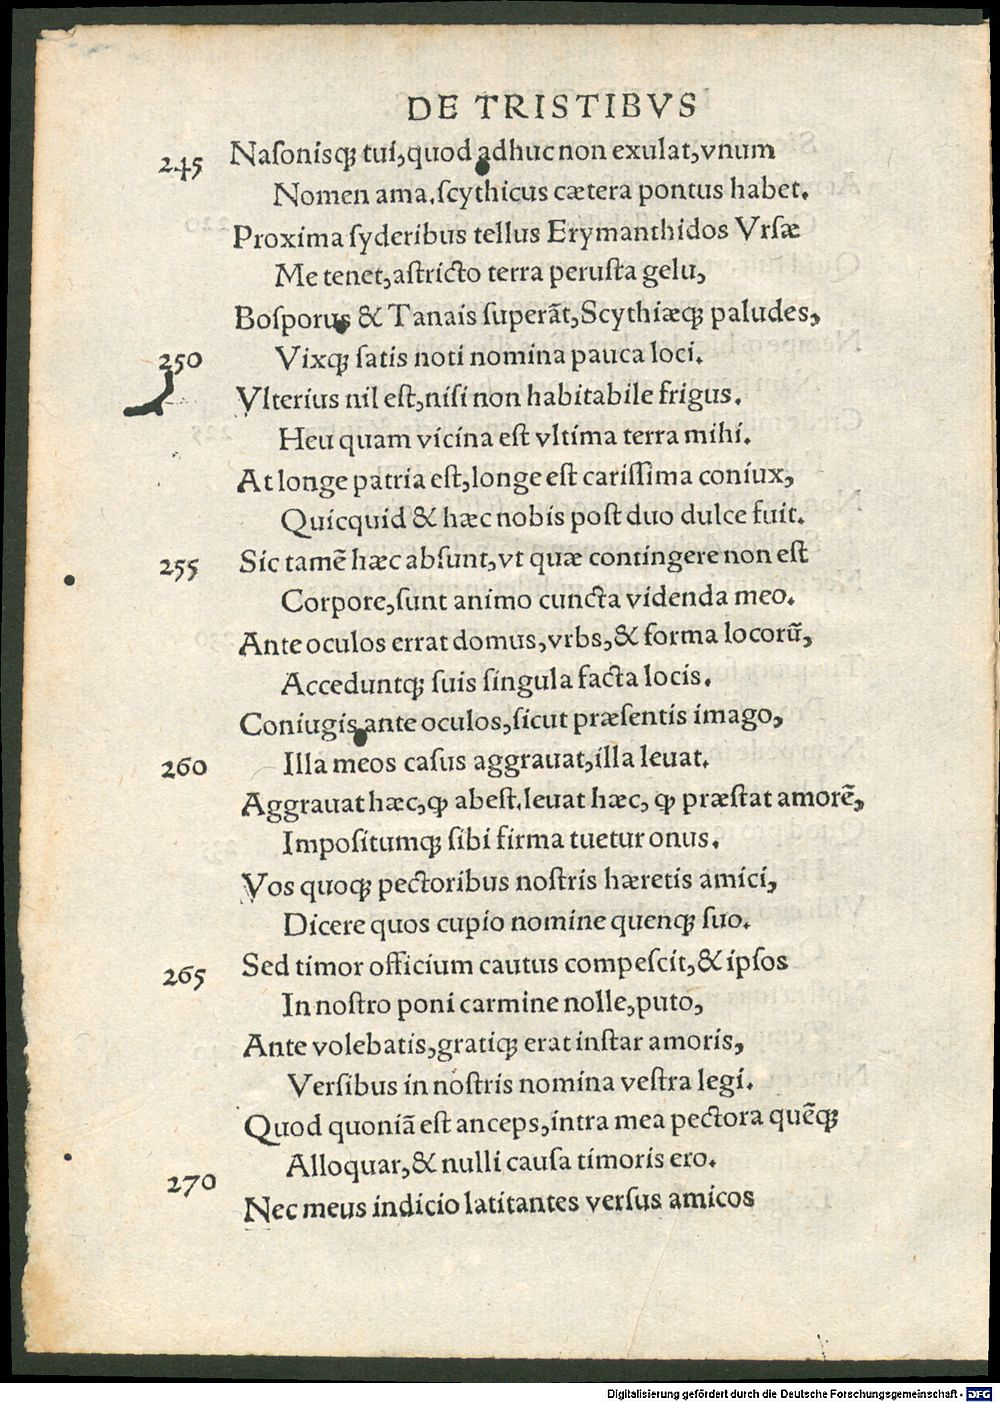 DE TRISTIBVS
245 Naſonisqꝫ tui, quod adhuc non exulat, vnum
Nomen ama. ſcythicus cætera pontus habet.
Proxima ſyderibus tellus Erymanthidos Vrſæ
Me tenet, aſtricto terra peruſta gelu,
Boſporus & Tanais ſuperãt, Scythiæqꝫ paludes,
250 Vixqꝫ ſatis noti nomina pauca loci.
Vlterius nil eſt, niſi non habitabile frigus.
Heu quam vicina eſt vltima terra mihi.
At longe patria eſt, longe eſt cariſſima coniux,
Quicquid & hæc nobis poſt duo dulce fuit.
255 Sic tamẽ hæc abſunt, vt quæ contingere non eſt
Corpore, ſunt animo cuncta videnda meo.
Ante oculos errat domus, vrbs, & forma locorũ,
Acceduntqꝫ ſuis ſingula facta locis.
Coniugis ante oculos, ſicut præſentis imago,
260 Illa meos caſus aggrauat, illa leuat.
Aggrauat hæc, ꝙ abeſt. leuat hæc, ꝙ præſtat amorẽ,
Impoſitumqꝫ ſibi firma tuetur onus.
Vos quoqꝫ pectoribus noſtris hæretis amici,
Dicere quos cupio nomine quenqꝫ ſuo.
265 Sed timor officium cautus compeſcit, & ipſos
In noſtro poni carmine nolle, puto,
Ante volebatis, gratiqꝫ erat inſtar amoris,
Verſibus in noſtris nomina veſtra legi.
Quod quoniã eſt anceps, intra mea pectora quẽqꝫ
Alloquar, & nulli cauſa timoris ero.
270 Nec meus indicio latitantes verſus amicos
Digitalisierung gefördert durch die Deutsche Forschungsgemeinschaft - DFG